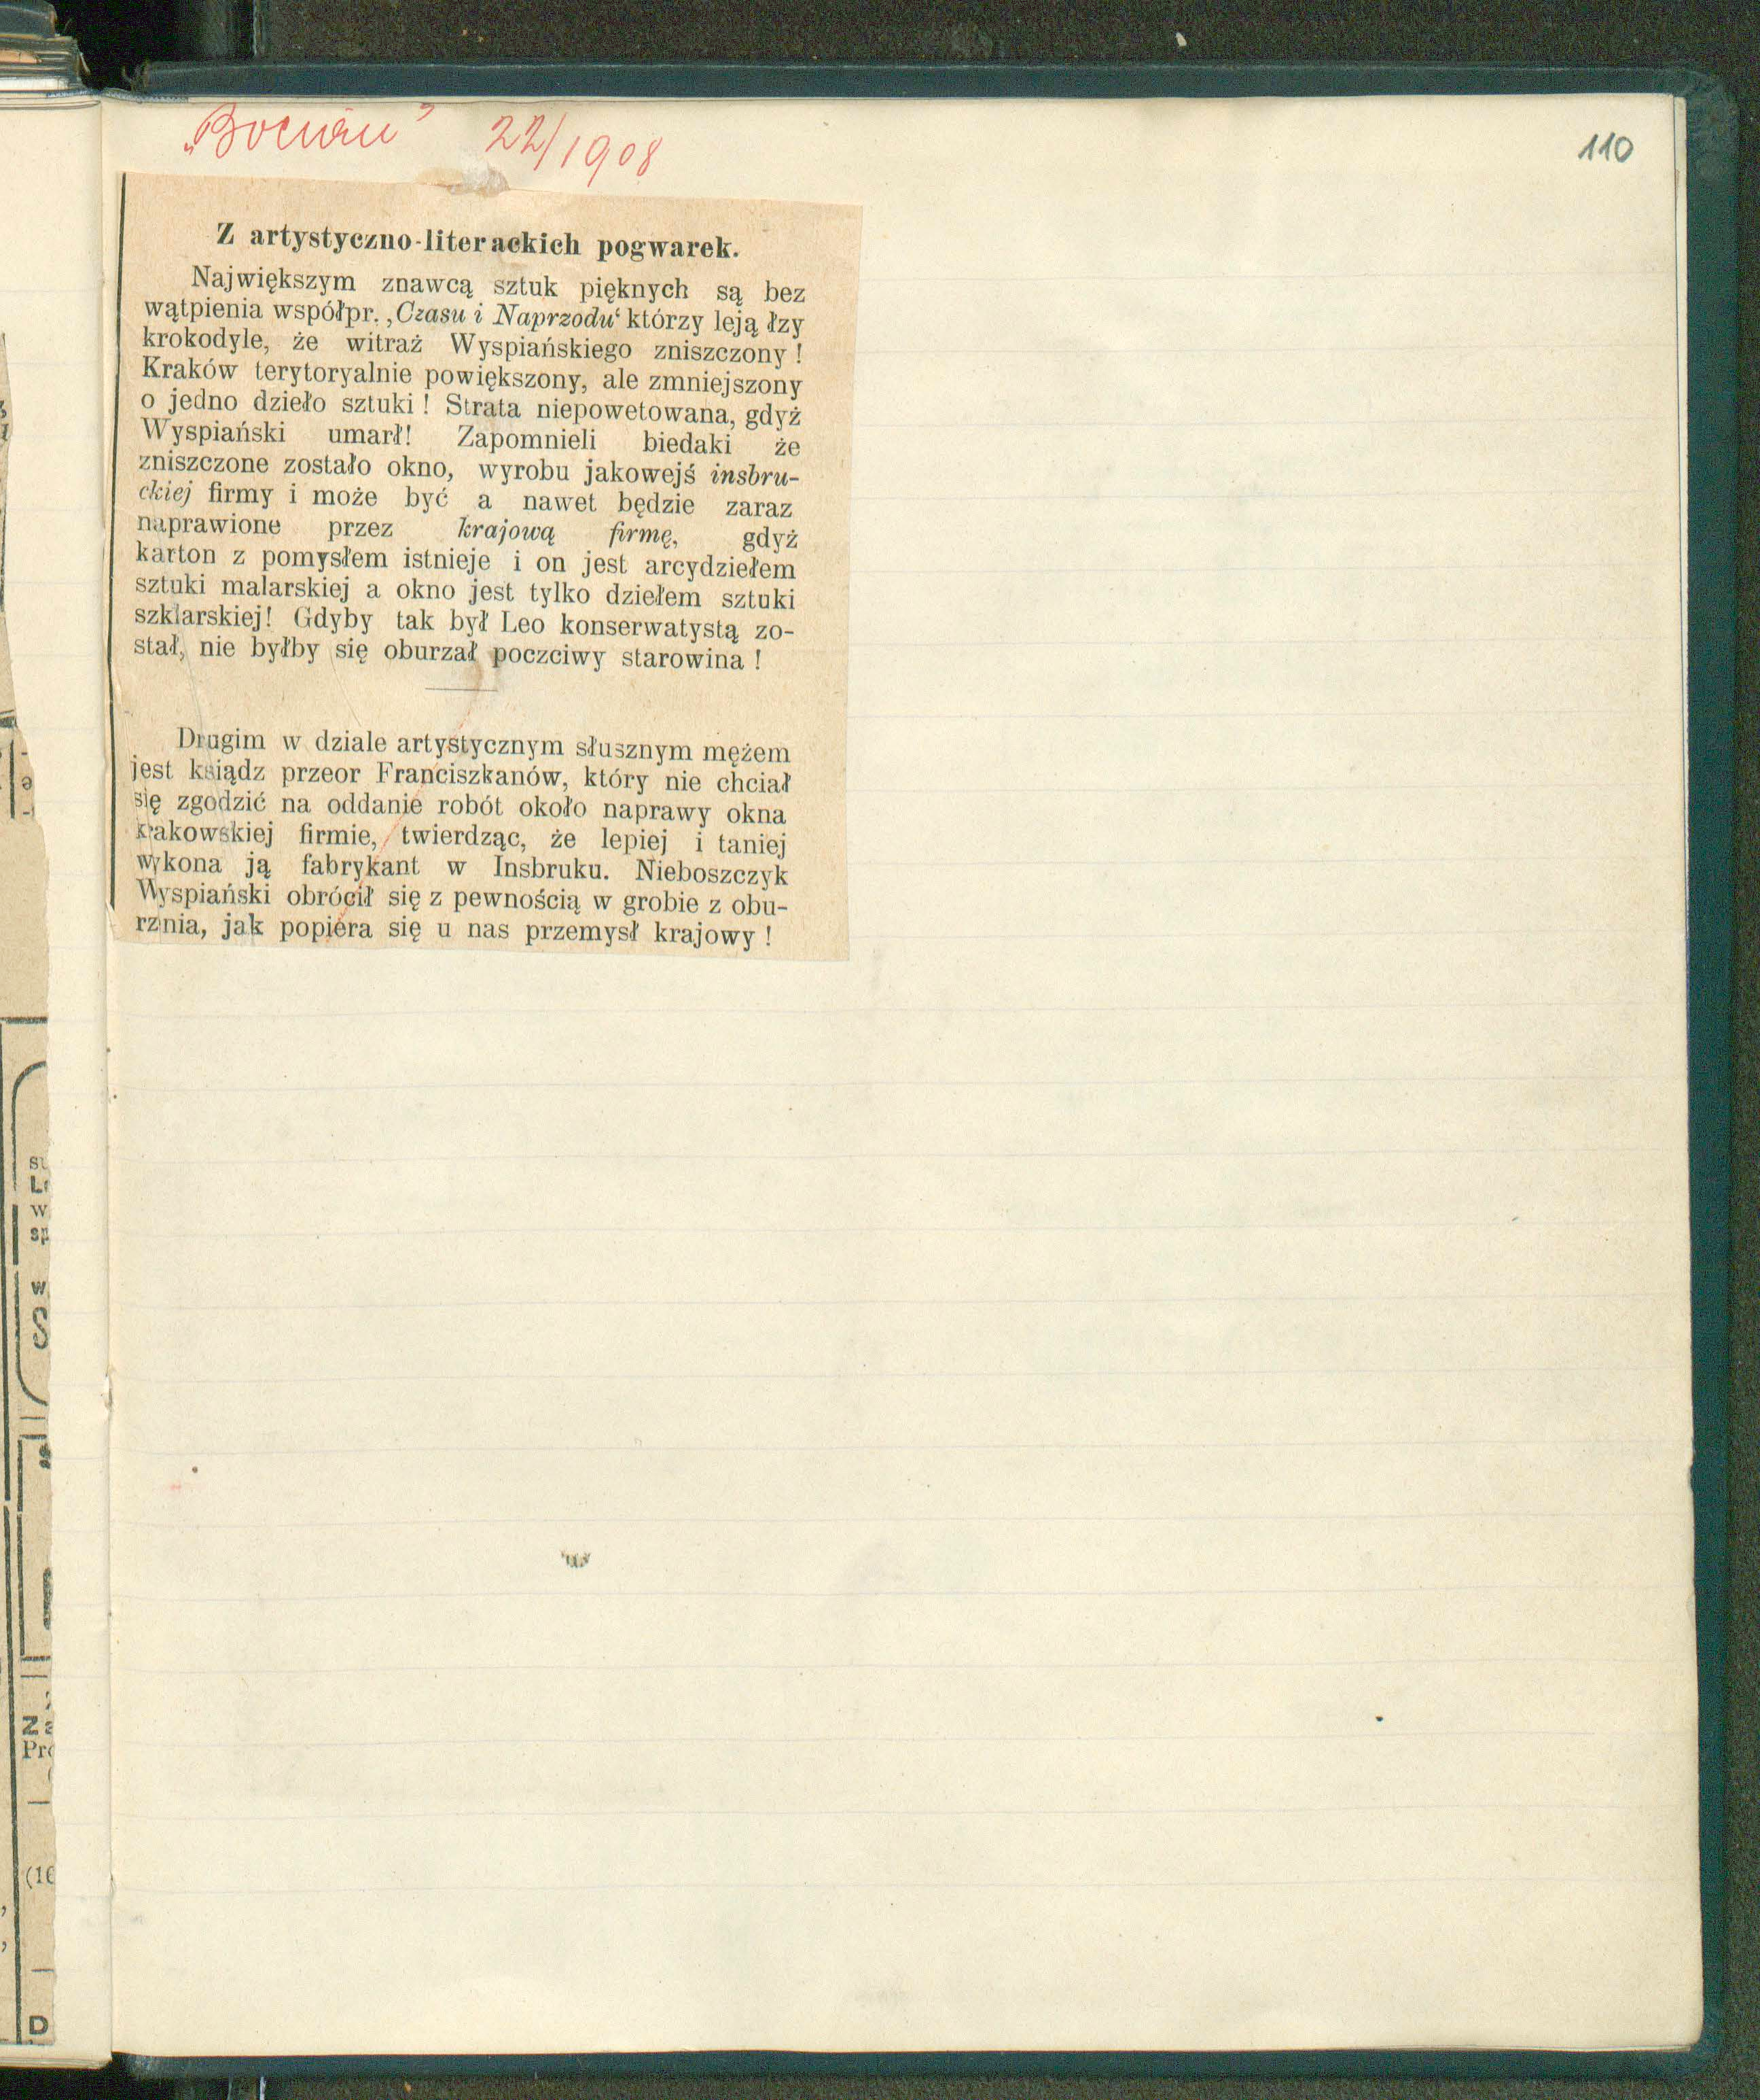 „Bocian” 22/1908
110
Z artystyczno-literackich pogwarek.
Największym znawcą sztuk pięknych są bez
wątpienia współpr. ‚Czasu i Naprzodu‘ którzy leją łzy
krokodyle, że witraż Wyspiańskiego zniszczony !
Kraków terytoryalnie powiększony, ale zmniejszony
o jedno dzieło sztuki ! Strata niepowetowana, gdyż
Wyspiański umarł! Zapomnieli biedaki że
zniszczone zostało okno, wyrobu jakowejś insbru-
ckiej firmy i może być a nawet będzie zaraz
naprawione przez krajową firmę, gdyż
karton z pomysłem istnieje i on jest arcydziełem
sztuki malarskiej a okno jest tylko dziełem sztuki
szklarskiej! Gdyby tak był Leo konserwatystą zo-
stał, nie byłby się oburzał poczciwy starowina !
Drugim w dziale artystycznym słusznym mężem
jest ksiądz przeor Franciszkanów, który nie chciał
się zgodzić na oddanie robót około naprawy okna
krakowskiej firmie, twierdząc, że lepiej i taniej
wykona ją fabrykant w Insbruku. Nieboszczyk
Wyspiański obrócił się z pewnością w grobie z obu-
rznia, jak popiera się u nas przemysł krajowy !
su
w
sp
w
S
Za
Pro
(16
D